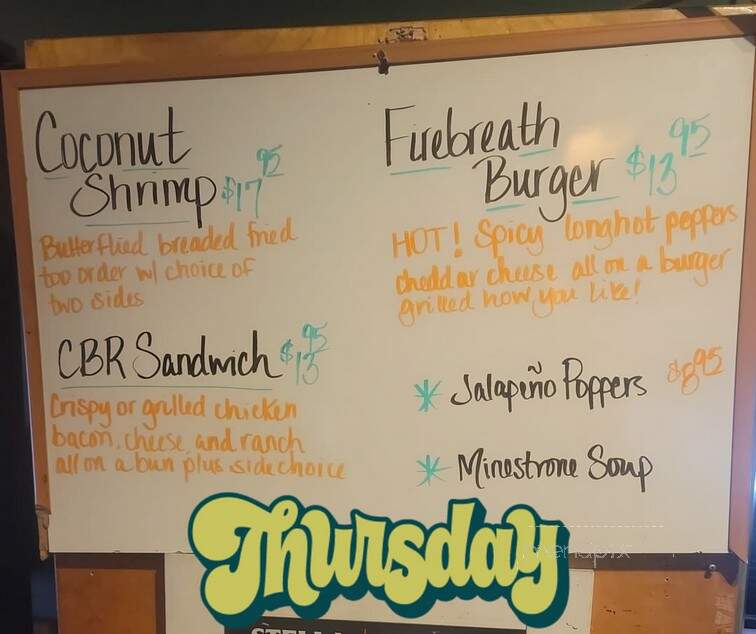 Coconut
Shrimp $17 95
Butterflied breaded fried
too order w/ choice of
two sides
CBR Sandwich $13 95
Crispy or grilled chicken
bacon, cheese, and ranch
all on a bun plus side choice
Firebreath
Burger $13 95
HOT! Spicy longhot peppers
cheddar cheese all on a burger
grilled how you like!
* Jalapeño Poppers $8 95
* Minestrone Soup
Thursday